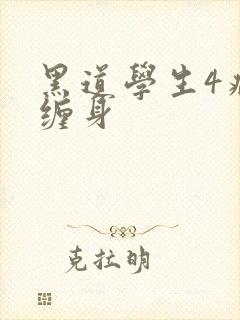 黑道學生4
缠身
克拉明